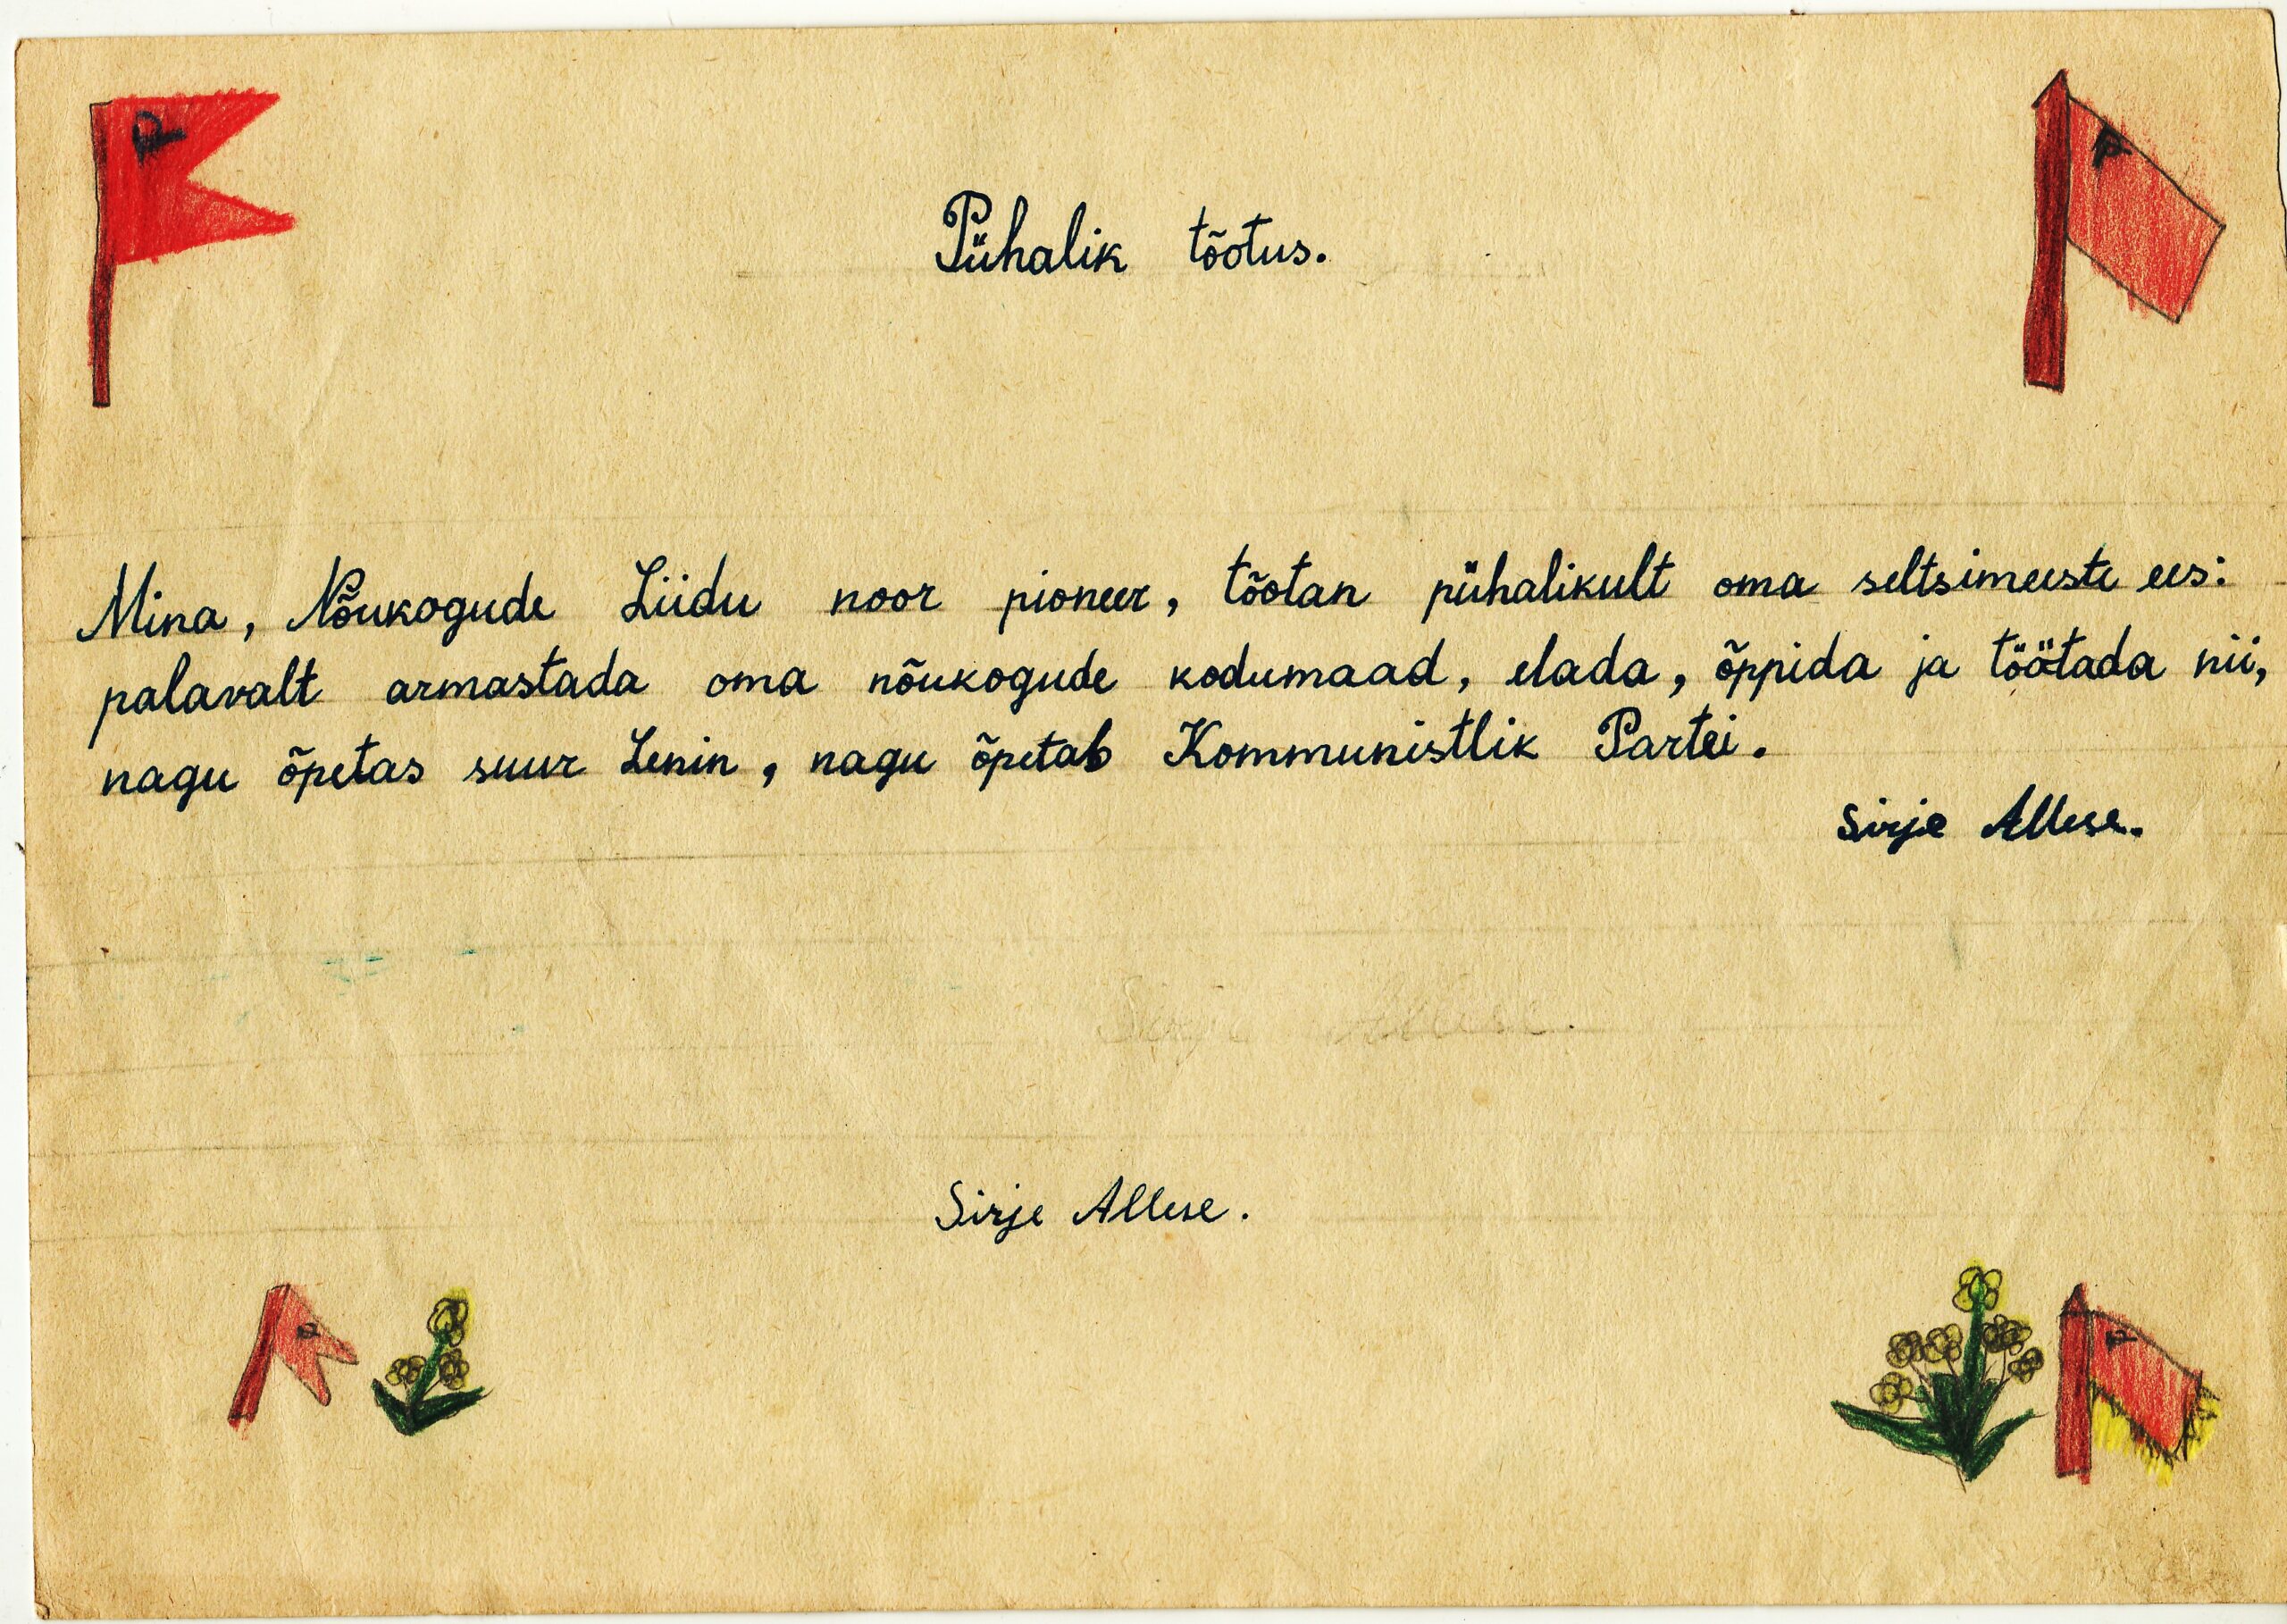 P
P
Pühalik tõotus.
Mina, Nõukogude Liidu noor pioneer, tõotan pühalikult oma seltsimeeste ees:
palavalt armastada oma nõukogude kodumaad, elada, õppida ja töötada nii,
nagu õpetas suur Lenin, nagu õpetab Kommunistlik Partei.
Sirje Allese.
Sirje Allese.
Sirje Allese.
P
P